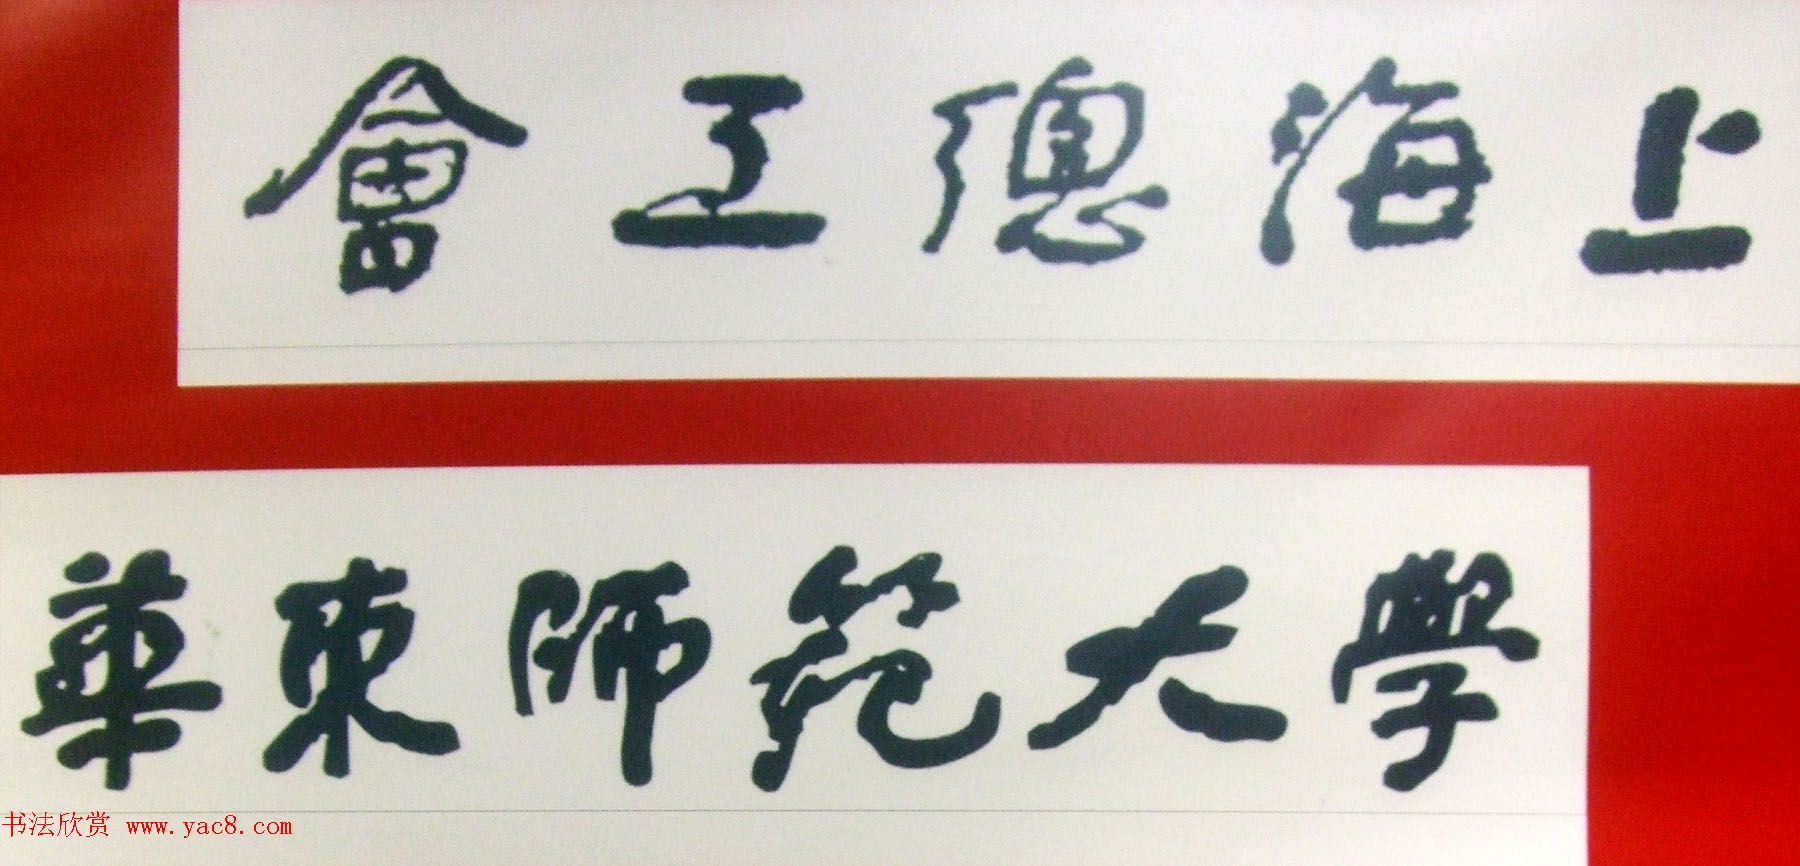 上海總工會
華東師範大學
书法欣赏 www.yac8.com